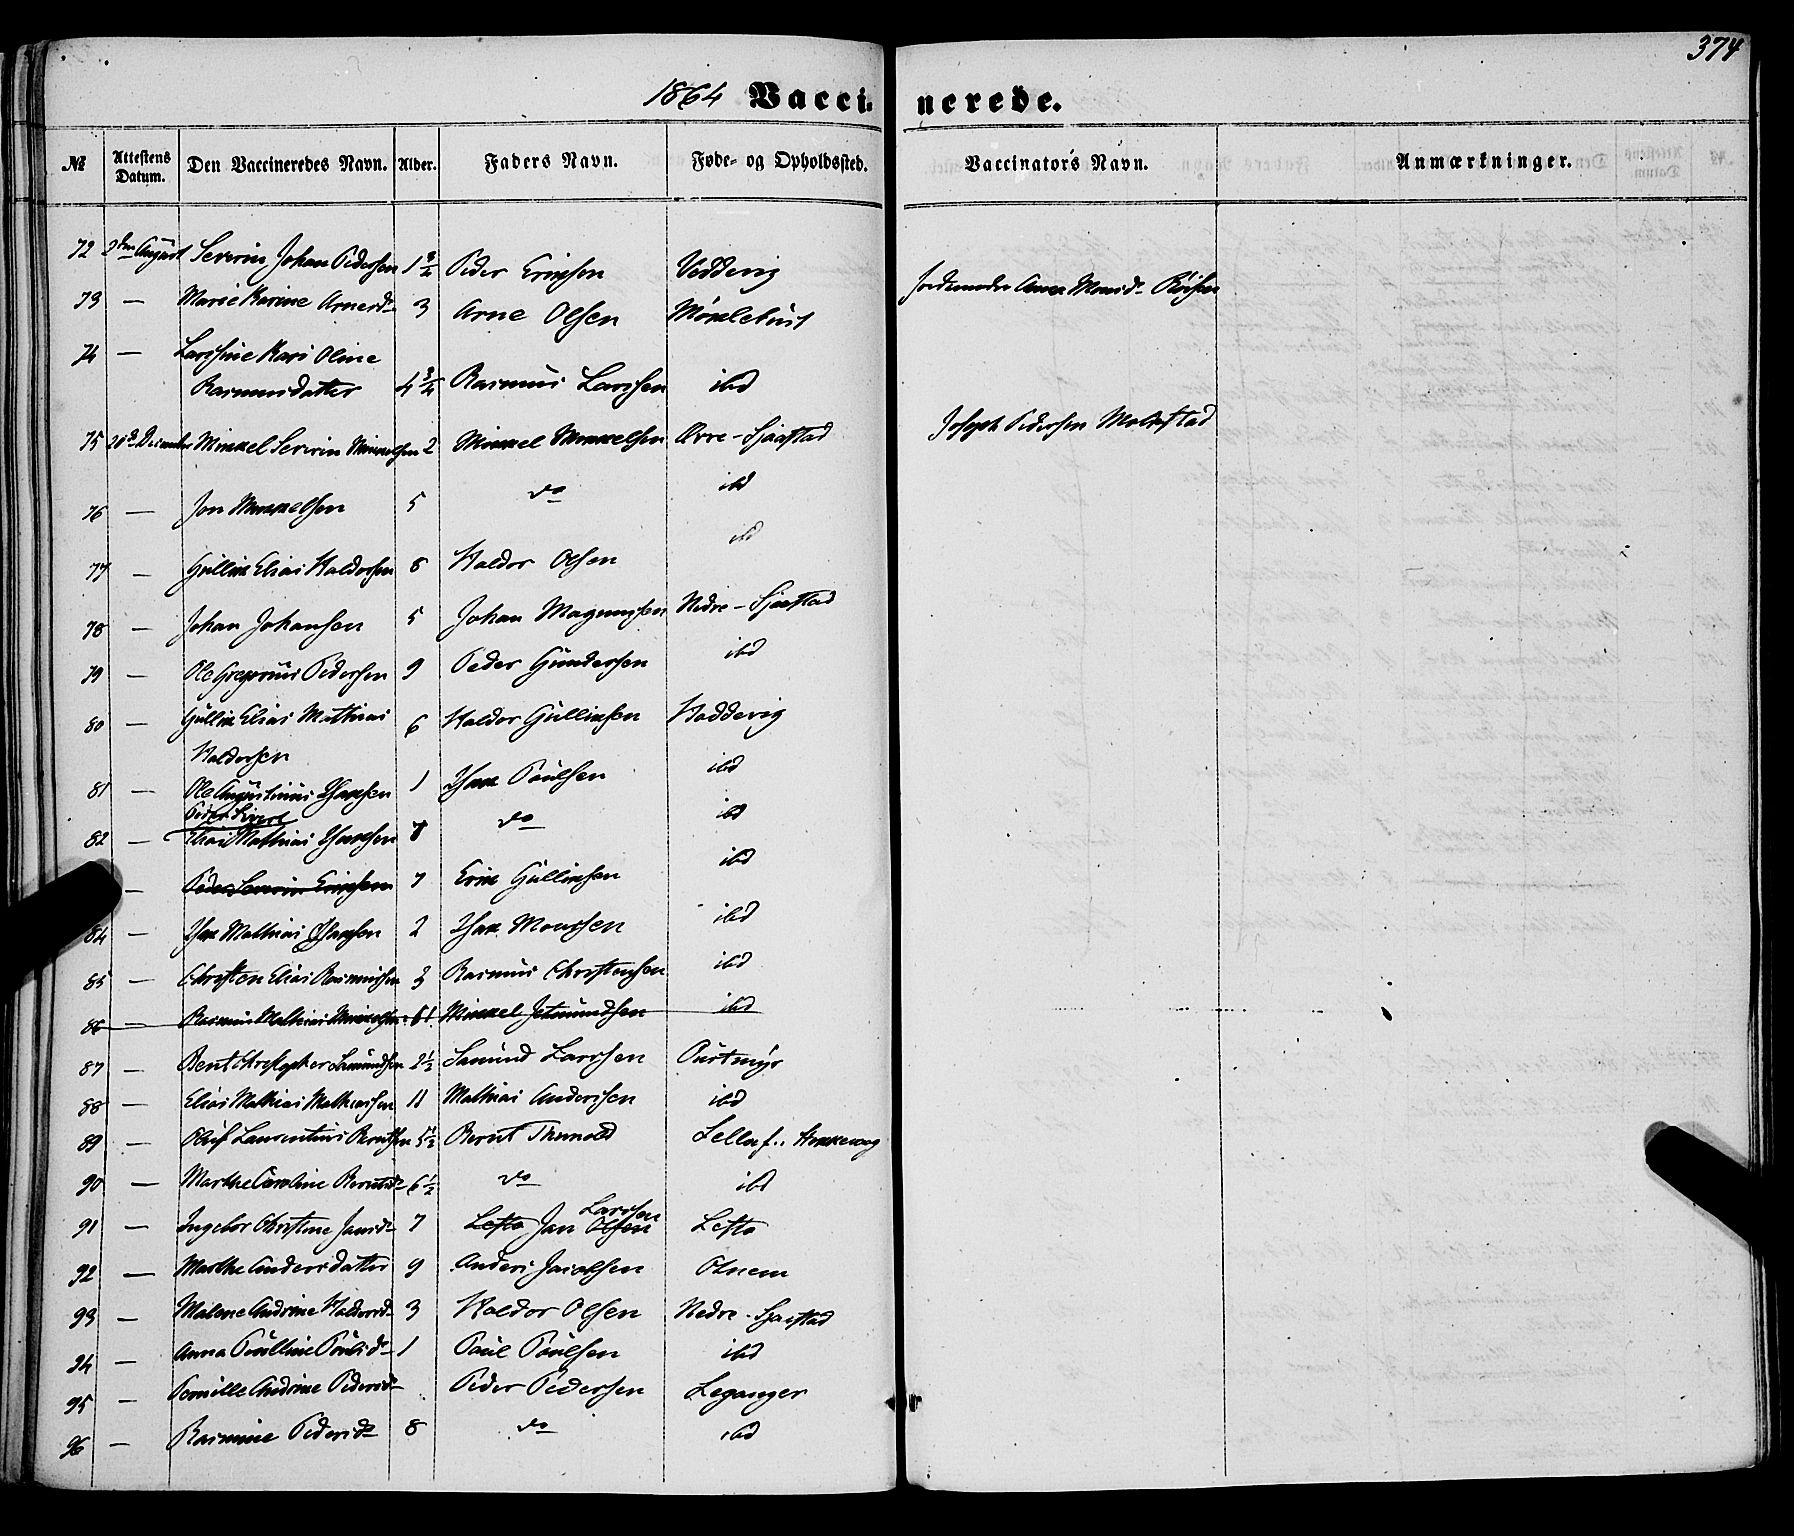 374
1864 Vaccinerede.
№ Attestens Datum. Den Vaccineredes Navn. Alder. Faders Navn. Føde- og Opholdssted. Vaccinators Navn. Anmærkninger.
72 2den August Severin Johan Pedersen 1 3/4 Peder Eriksen
Jordemoder Anna Monsd.
73 — Marie Karine Arnesd. 3 Arne Olsen
74 — Larssine Kari Oline
Rasmusdatter 4 3/4 Rasmus Larssen ibd
75 20de December Mikkel Severin Mikkelsen 2 Mikkel Mikkelsen Øvre-Sjaastad Joseph Pedersen
76 — Jon Mikkelsen 5 do ibd
77 — Gullik Elias Haldorsen 8 Haldor Olsen ibd
78 — Johan Johansen 5 Johan Magnussen Nedre-Sjaastad
79 — Ole Gregorius Pedersen 9 Peder Gundersen ibd
80 — Gullik Elias Mathias
Haldorsen 6 Haldor Gulliksen Haddevig
81 — Ole Augustinus Isaksen 1 Isak Poulsen ibd
Peder Sivert
82 — Elias Mathias Isaksen 8 do ibd
— Peder Severin Eriksen 7 Erik Gulliksen ibd
84 — Isak Mathias Isaksen 2 Isak Monssen ibd
85 — Christen Elias Rasmussen 3 Rasmus Christensen ibd
86 — Rasmus Mathias Mikkelsen Mikkel Jetmundsen ibd
87 — Bent Christopher Samundsen 2 1/2 Samund Larssen
88 — Elias Mathias Mathiassen 11 Mathias Anderssen ibd
89 — Oluf Laurentius Berntsen 5 1/2 Bernt
90 — Marthe Caroline Berntsd. 6 1/2 do ibd
Larssen
91 — Ingebor Christine Jansd. 7 Lefto Jan Olsen Lefto
92 — Marthe Andersdatter 9 Anders Jacobsen Otnem
93 — Malene Andrine Haldorsd. 3 Haldor Olsen Nedre-Sjaastad
94 — Anna Poulline Poulsd. 1 Poul Poulsen ibd
95 — Pernille Andrine Pedersd. Peder Pedersen Leganger
96 — Rasmine Pedersd. 8 do ibd